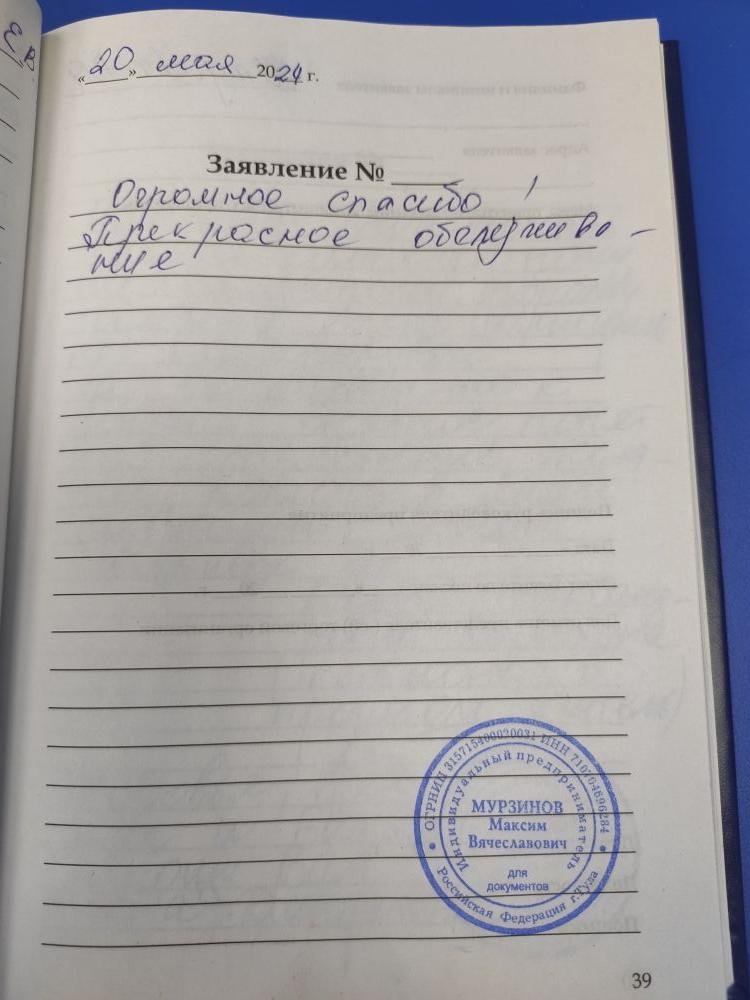 Е В.
«20» мая 2024 г.
Заявление № ____
Огромное спасибо !
Прекрасное обслужива-
ние
ОГРНИП 315715400020031 ИНН 710704696284
Индивидуальный предприниматель
МУРЗИНОВ
Максим
Вячеславович
для
документов
Российская Федерация г.Тула
39